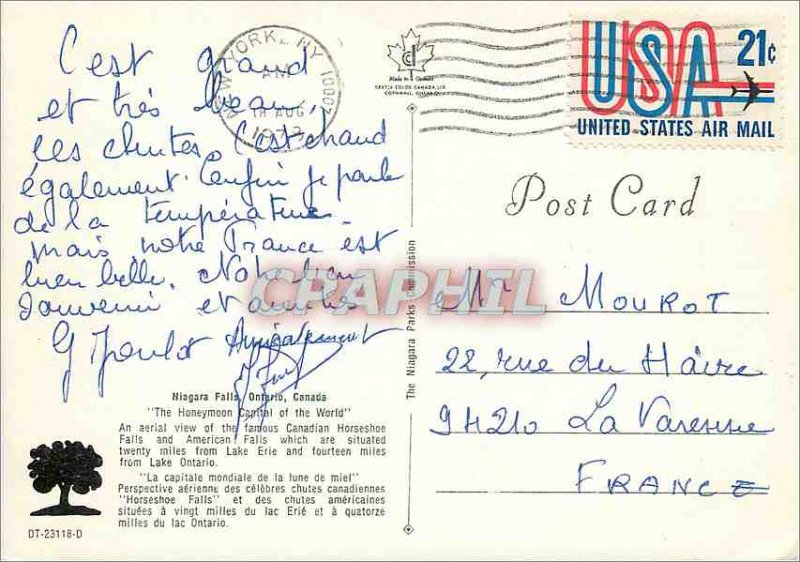 C'est grand
et très beau,
les chutes. C'est chaud
également. Enfin je parle
de la température
mais notre France est
bien belle.
Souvenir et amitiés
G
Amicalement
NEW YORK, NY 1000
AM
18 AUG
Made in Canada
CANADA, LTD
CORNWALL, ONTARIO
USA 21¢
UNITED STATES AIR MAIL
Post Card
The Niagara Parks Commission
CRAPHIL
Mr MOUROT
22, rue du Hâvre
94210 La Varenne
FRANCE
Niagara Falls, Ontario, Canada
"The Honeymoon Capital of the World"
An aerial view of the famous Canadian Horseshoe
Falls and American Falls which are situated
twenty miles from Lake Erie and fourteen miles
from Lake Ontario.
"La capitale mondiale de la lune de miel"
Perspective aérienne des célèbres chutes canadiennes
"Horseshoe Falls" et des chutes américaines
situées à vingt milles du lac Erié et à quatorze
milles du lac Ontario.
DT-23118-D